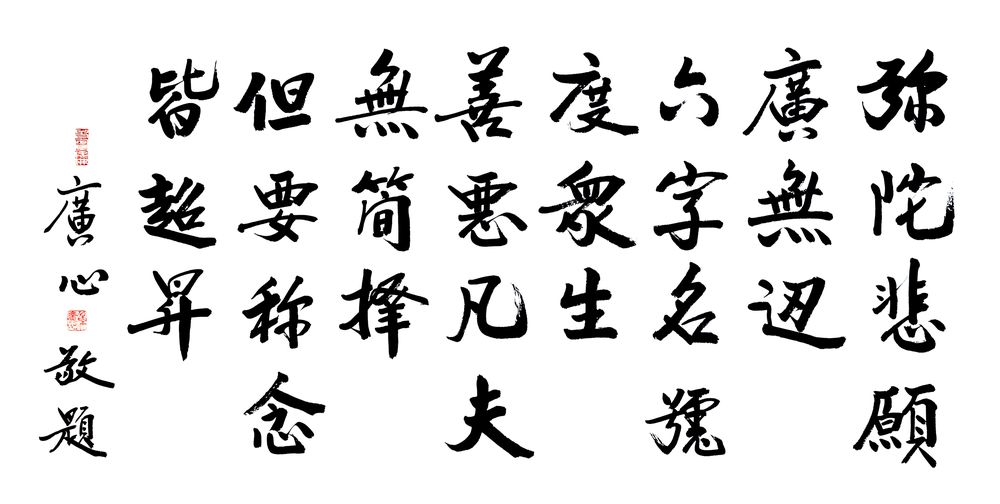 弥陀悲願
廣無边
六字名號
度眾生
善惡凡夫
無簡擇
但要称念
皆超昇
廣心敬題